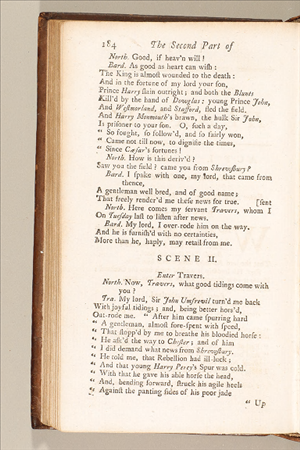 184 The Second Part of
North. Good, if heav'n will!
Bard. As good as heart can wish:
The King is almost wounded to the death:
And in the fortune of my lord your son,
Prince Harry slain outright; and both the Blunts
Kill'd by the hand of Douglas: young Prince John,
And Westmorland, and Stafford, fled the field.
And Harry Monmouth's brawn, the hulk Sir John,
Is prisoner to your son. O, such a day,
" So fought, so follow'd, and so fairly won,
" Came not till now, to dignifie the times,
" Since Cæsar's fortunes!
North. How is this deriv'd?
Saw you the field? came you from Shrewsbury?
Bard. I spake with one, my lord, that came from
thence,
A gentleman well bred, and of good name;
That freely render'd me these news for true. [sent
North. Here comes my servant Travers, whom I
On Tuesday last to listen after news.
Bard. My lord, I over-rode him on the way.
And he is furnish'd with no certainties,
More than he, haply, may retail from me.
SCENE II.
Enter Travers.
North. Now, Travers, what good tidings come with
you?
Tra. My lord, Sir John Umfrevil turn'd me back
With joyful tidings; and, being better hors'd,
Out-rode me. " After him came spurring hard
" A gentleman, almost fore-spent with speed,
" That stopp'd by me to breathe his bloodied horse:
" He ask'd the way to Chester; and of him
" I did demand what news from Shrewsbury.
" He told me, that Rebellion had ill luck;
" And that young Harry Percy's Spur was cold.
" With that he gave his able horse the head,
" And, bending forward, struck his agile heels
" Against the panting sides of his poor jade
" Up